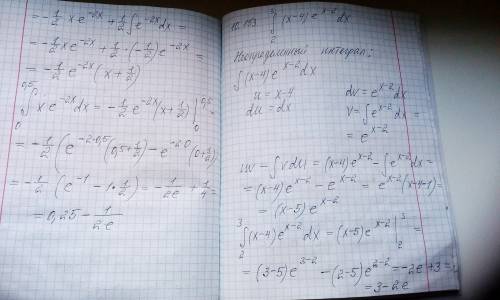 = -1/2 x e^{-2x} + 1/2 ∫ e^{-2x} dx =
= -1/2 x e^{-2x} + 1/2 · (-1/2) e^{-2x} =
= -1/2 e^{-2x} (x + 1/2)
∫_0^{0,5} x·e^{-2x} dx = -1/2 e^{-2x} (x + 1/2) |_0^{0,5} =
= -1/2 (e^{-2·0,5} (0,5 + 1/2) - e^{-2·0} (0 + 1/2)) =
= -1/2 (e^{-1} - 1·1/2) = -1/2e + 1/4 =
= 0,25 - 1/2e
∫_2^3 (x-4) e^{x-2} dx
Неопределенный интеграл:
∫ (x-4) e^{x-2} dx
u = x-4 dv = e^{x-2} dx
du = dx v = ∫ e^{x-2} dx =
= e^{x-2}
uv - ∫ v du = (x-4) e^{x-2} - ∫ e^{x-2} dx =
= (x-4) e^{x-2} - e^{x-2} = e^{x-2} (x-4-1) =
= (x-5) e^{x-2}
∫_2^3 (x-4) e^{x-2} dx = (x-5) e^{x-2} |_2^3 =
= (3-5) e^{3-2} - (2-5) e^{2-2} = -2e + 3 =
= 3 - 2e